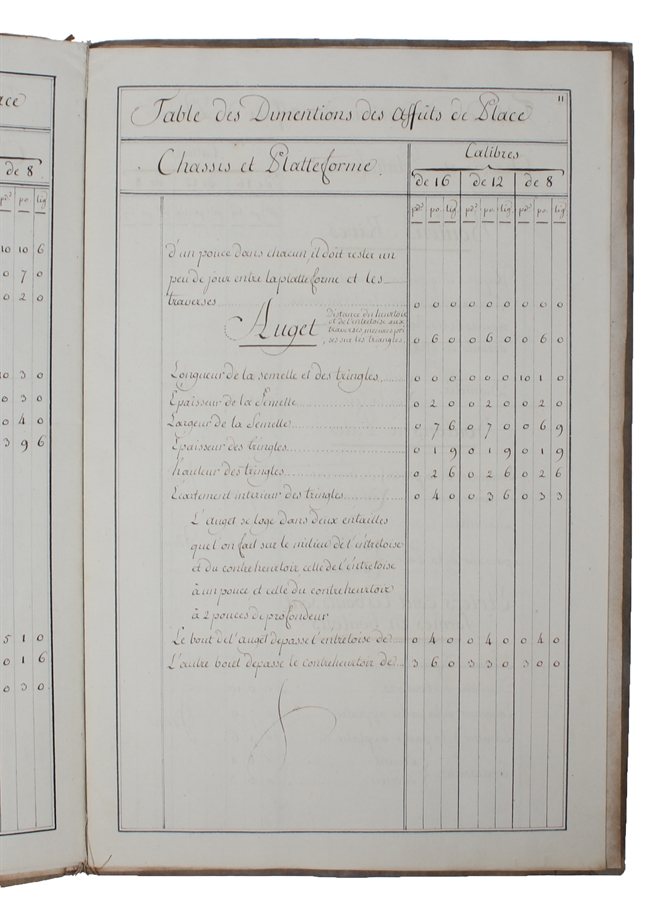 ace
de 8
pds po. lig
10 10 6
0 7 0
0 2 0
10 3 0
0 3 0
0 4 0
3 9 6
5 1 0
0 1 6
0 3 0
11
Table des Dimentions des affuts de Place
Chassis et Platteforme.
Calibres
de 16 de 12 de 8
pds po. lig pds po. lig pds po. lig
d'un pouce dans chacun, il doit rester un
peu de jour entre la platteforme et les
traverses 0 0 0 0 0 0 0 0 0
Auget
Distance du heurtoir
et de l'entretoise aux
traverses mesures pri
ses sur les triangles. 0 6 0 0 6 0 0 6 0
Longueur de la semelle et des tringles 0 0 0 0 0 0 10 1 0
Epaisseur de la Semelle 0 2 0 0 2 0 0 2 0
Largeur de la Semelle 0 7 6 0 7 0 0 6 9
Epaisseur des tringles 0 1 9 0 1 9 0 1 9
hauteur des tringles 0 2 6 0 2 6 0 2 6
L'ecartement interieur des tringles 0 4 0 0 3 6 0 3 3
L'auget se loge dans deux entailles
que l'on fait sur le milieu de l'entretoise
et du contreheurtoir celle de l'entretoise
à un pouce et celle du contreheurtoir
à 2 pouces de profondeur
Le bout de l'auget depasse l'entretoise de 0 4 0 0 4 0 0 4 0
L'autre bout depasse le contreheurtoir de 3 6 0 3 3 0 3 0 0